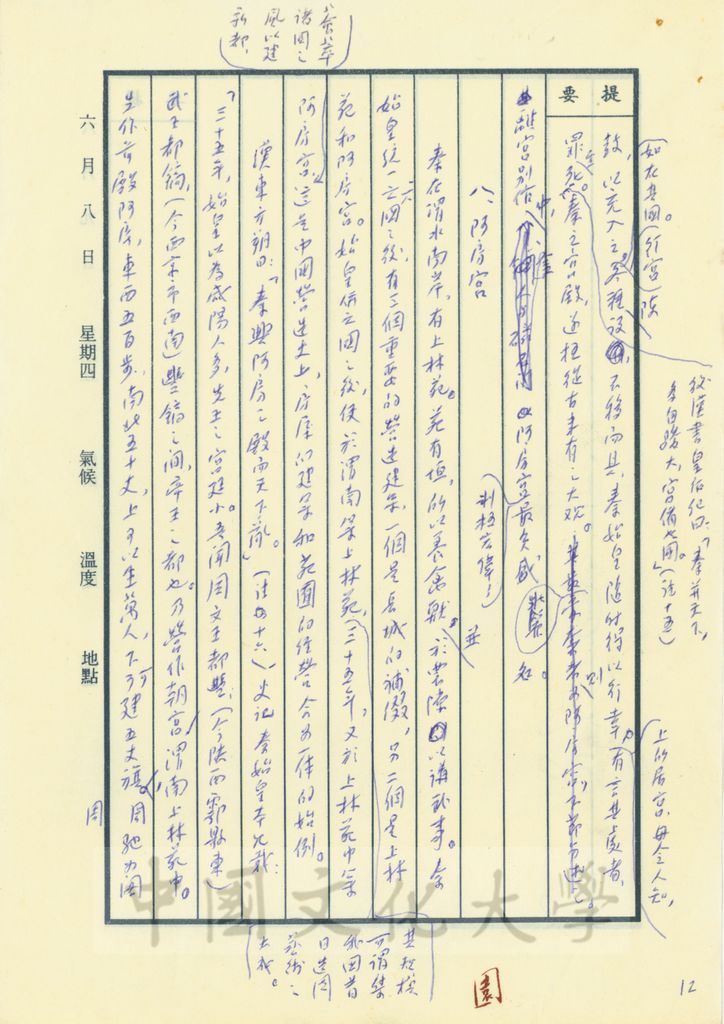 提要
鼓，以充入之，各種設，不移而具，秦始皇隨時得以行幸，有言其處者，
罪死。秦之宮殿，遂極從古未有之大觀。
離宮別館中，阿房宮最負盛名。
八、阿房宮
秦在渭水南岸，有上林苑。苑有垣，所以養禽獸，並於農隙以講武事。秦
始皇統一六國之後，有三個重要的營造建築，一個是長城的補綴，另二個是上林
苑和阿房宮。始皇併六國之後，便於渭南築上林苑，三十五年，又於上林苑中築
阿房宮，這是中國營造史上，房屋的建築和苑囿的經營合為一体的始例。
漢東方朔曰：「秦興阿房之殿而天下亂。」（註四十六）史記秦始皇本紀載：
「三十五年，始皇以為咸陽人多，先王之宮廷小。吾聞周文王都豐，（今陝西鄠縣東）
武王都鎬，（今西京市西南）豐鎬之間，帝王之都也。乃營作朝宮渭南上林苑中。
先作前殿阿房，東西五百步，南北五十丈，上可以坐萬人，下可建五丈旗。周馳為閣
如在其國。（行宮）
後漢書皇后紀曰：「秦并天下，
多自驕大，宮備七國。」（註十五）
上的居宮，毋令人知，
制極宏偉，
建築
則
並
薈萃
諸國之
風以建
新都，
其規模
可謂集
我國昔
日造園
藝術之
大成。
周
六月八日 星期四 氣候 溫度 地點
園
12
中國文化大學